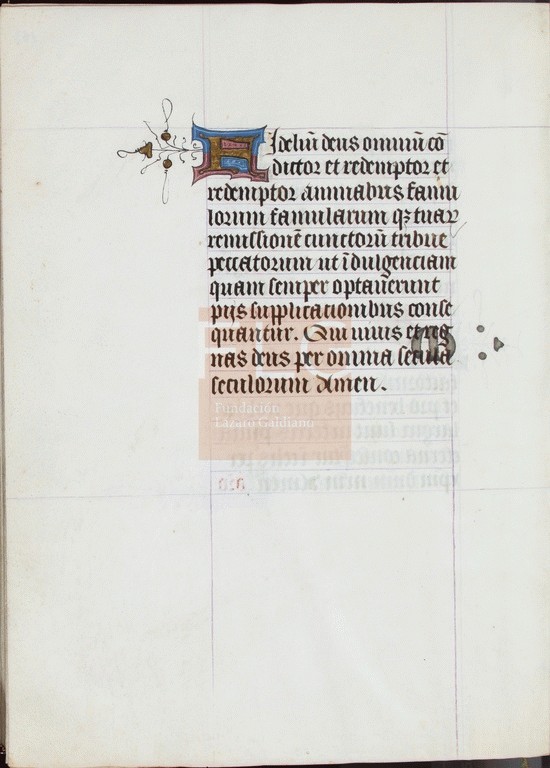 Fidelíu deus omniū cō
ditor et redemptor et
redemptor animabus famu
lorum famularum qꝫ tuaꝝ
remissionē cunctorū tribue
peccatorum ut īdulgenciam
quam semper optaūerunt
pijs supplicacionibus conse
quantur. Qui uiuis et reg
nas deus per omnia secula
seculorum Amen.
FLG
Fundación
Lázaro Galdiano